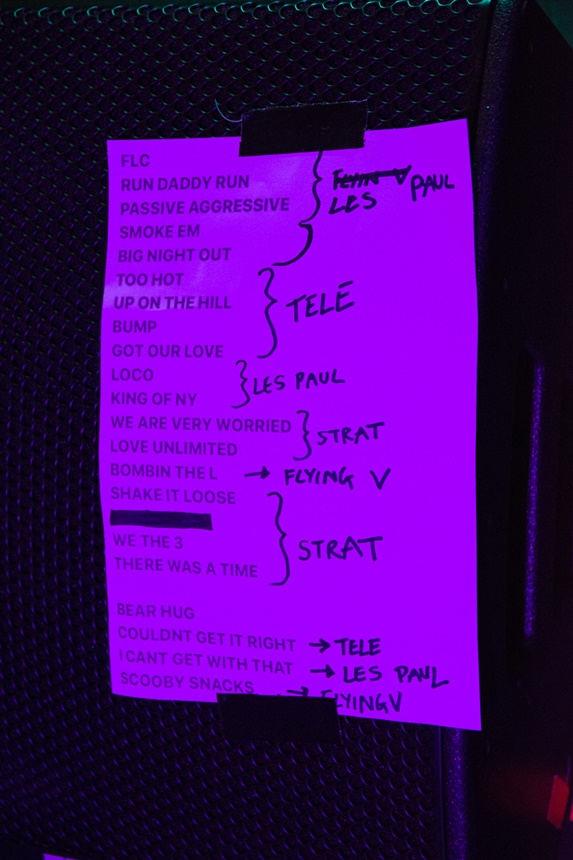 FLC
RUN DADDY RUN FLYIN V PAUL
PASSIVE AGGRESSIVE LES
SMOKE EM
BIG NIGHT OUT
TOO HOT
UP ON THE HILL TELE
BUMP
GOT OUR LOVE
LOCO LES PAUL
KING OF NY
WE ARE VERY WORRIED STRAT
LOVE UNLIMITED
BOMBIN THE L → FLYING V
SHAKE IT LOOSE
WE THE 3 STRAT
THERE WAS A TIME
BEAR HUG
COULDNT GET IT RIGHT → TELE
I CANT GET WITH THAT → LES PAUL
SCOOBY SNACKS → FLYING V